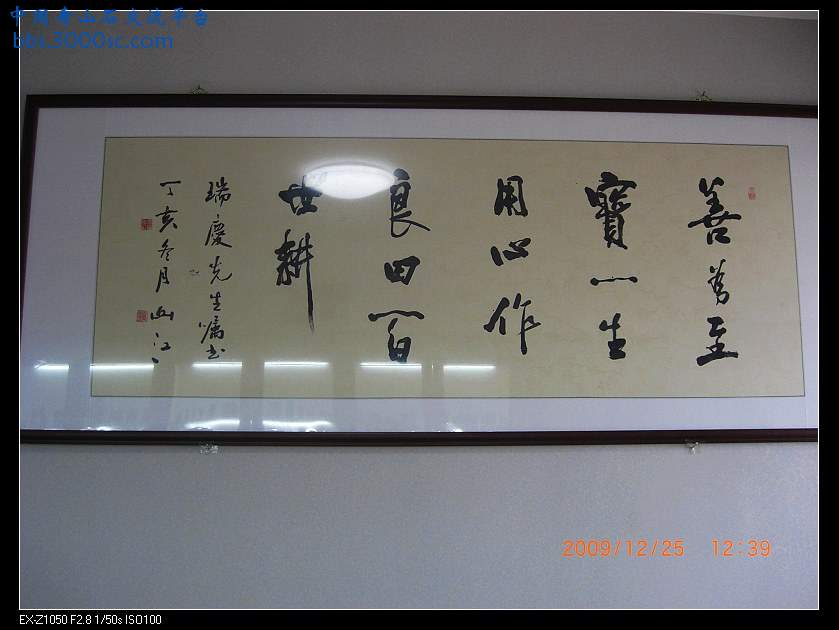 中国寿山石交流平台
bbs.3000sc.com
善為至
寶一生
用心作
良田百
世耕
瑞慶先生嘱书
丁亥冬月山江
2009/12/25 12:39
EX-Z1050 F2.8 1/50s ISO100